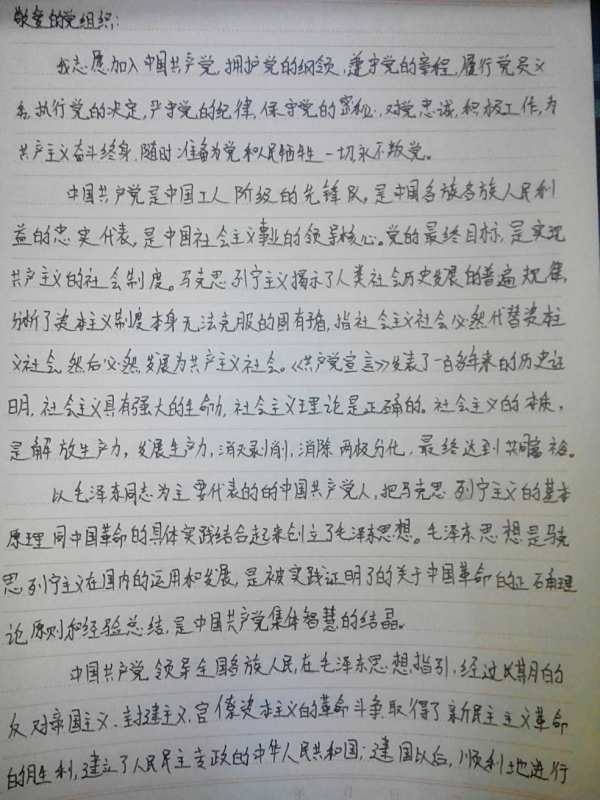 敬爱的党组织:
我志愿加入中国共产党,拥护党的纲领,遵守党的章程,履行党员义
务,执行党的决定,严守党的纪律,保守党的密秘,对党忠诚,积极工作,为
共产主义奋斗终身,随时准备为党和人民牺牲一切,永不叛党。
中国共产党是中国工人阶级的先锋队,是中国各族各族人民利
益的忠实代表,是中国社会主义事业的领导核心。党的最终目标,是实现
共产主义的社会制度。马克思列宁主义揭示了人类社会历史发展的普遍规集,
分析了资本主义制度本身无法克服的固有矛盾,指社会主义社会必然代替资本主
义社会,然后必然发展为共产主义社会。《共产党宣言》发表了一百多年来的历史证
明,社会主义具有强大的生命力,社会主义理论是正确的。社会主义的本质,
是解放生产力,发展生产力,消灭剥削,消除两极分化,最终达到共同富裕。
以毛泽东同志为主要代表的的中国共产党人,把马克思列宁主义的基本
原理同中国革命的具体实践结合起来创立了毛泽东思想。毛泽东思想是马克
思列宁主义在国内的运用和发展,是被实践证明了的关于中国革命的正确理
论原则和经验总结,是中国共产党集体智慧的结晶。
中国共产党领导全国各族人民,在毛泽东思想指引,经过长期的
反对帝国主义、封建主义、官僚资本主义的革命斗争,取得了新民主主义革命
的胜利,建立了人民民主专政的中华人民共和国;建国以后,顺利地进行